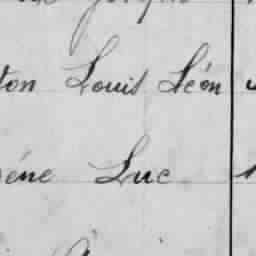 ton Louis Léon
éne Luc